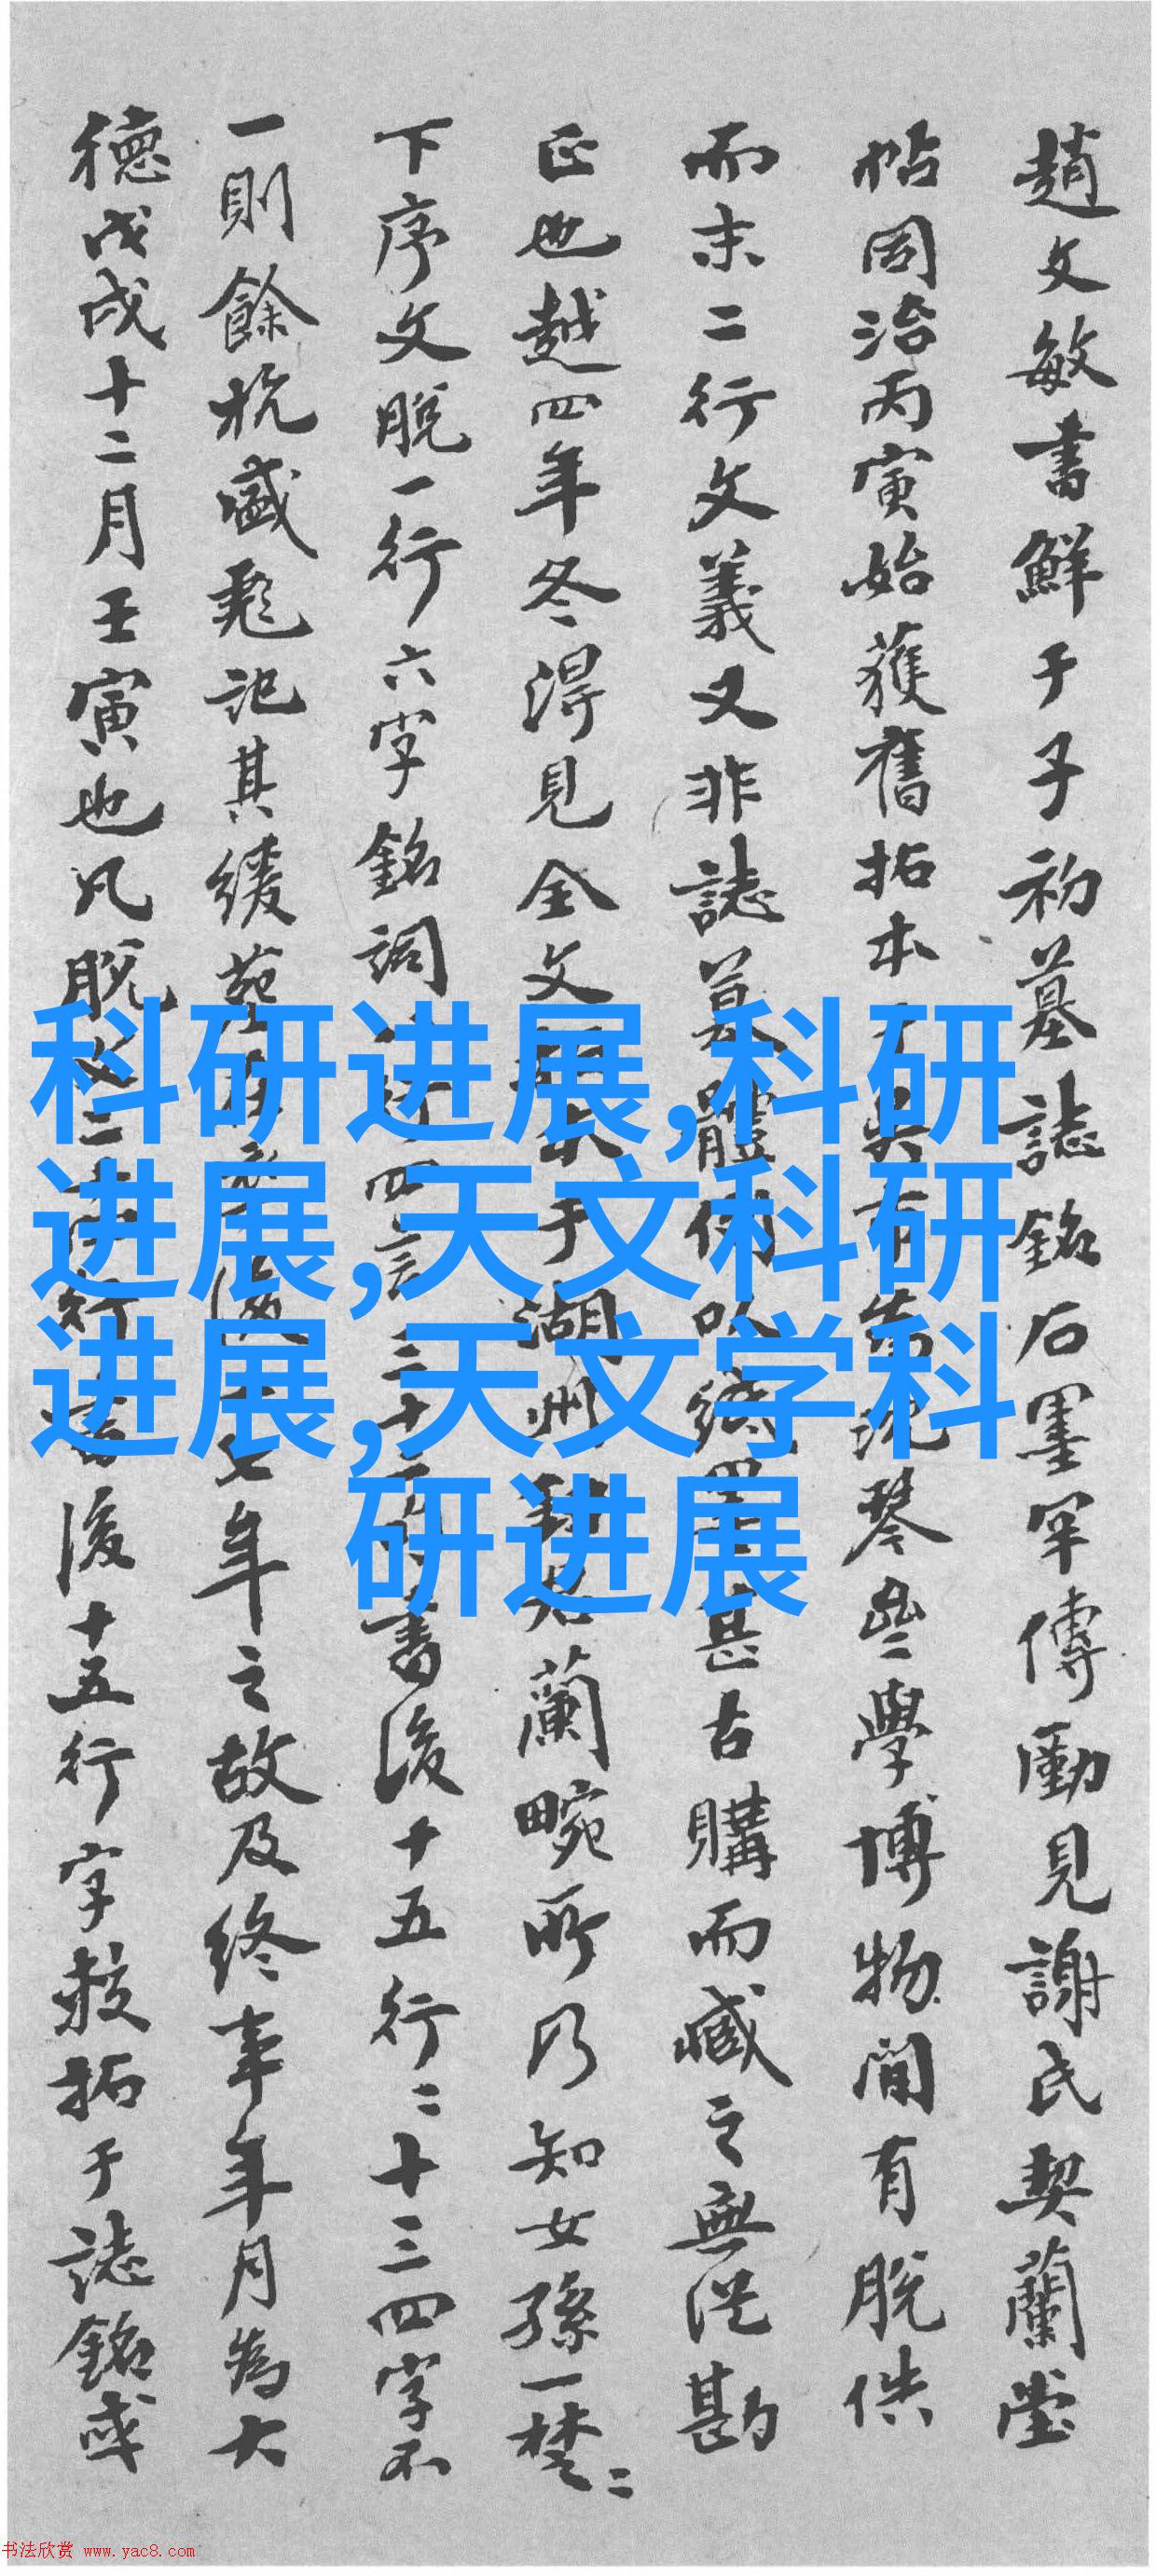 趙文敏書鮮于子初墓誌銘石墨罕傳勵見謝氏契蘭堂
帖同治丙寅始獲舊拓本琴學博物間有脫佚
而末二行文義又非誌墓體例甚古購而藏之無從勘
正也越四年冬得見全文于湖州蘭畹所乃知女孫一楚二
下序文脫一行六字銘詞四言三十書後十五行二十三四字不
一則餘杭盛記其緩七年之故及終事年月為大
德戊戌十二月壬寅也凡脫二行書後十五行字敍拓于誌銘或
科研进展,科研
进展,天文科研
进展,天文学科
研进展
书法欣赏 www.yac8.com